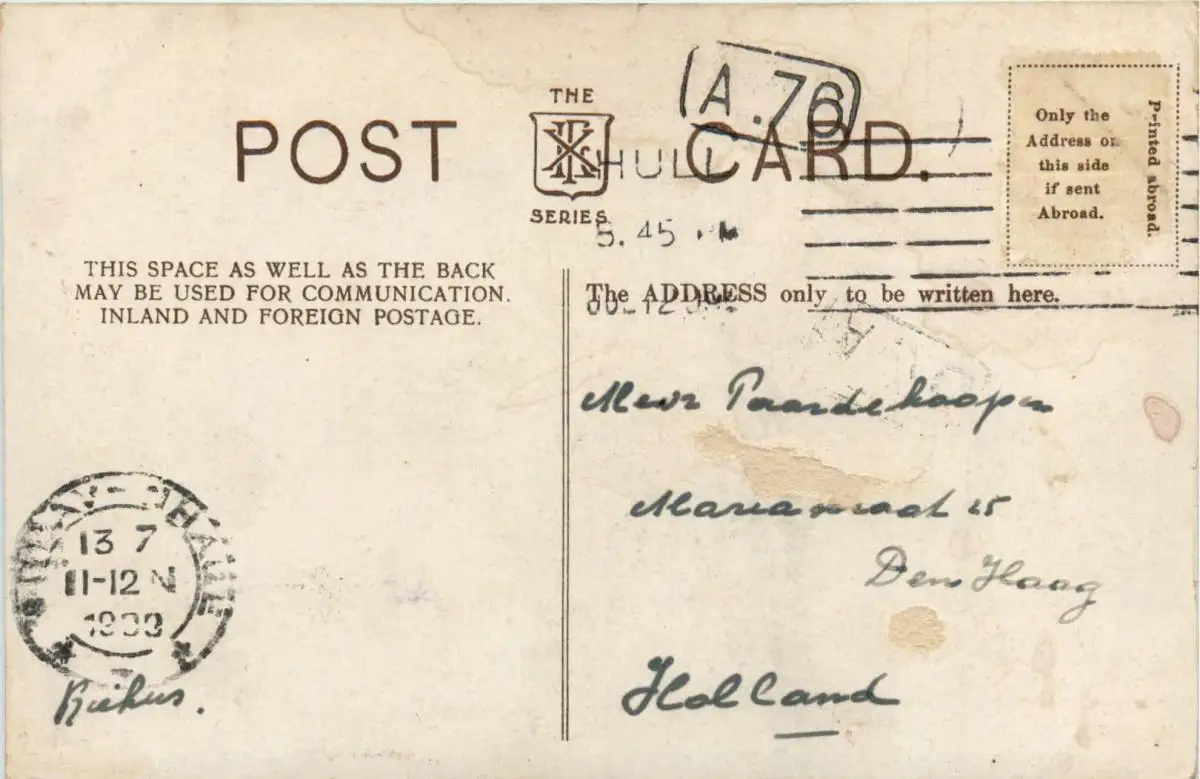 POST CARD.
THE
SERIES
A.76
HULL
5.45
JUL 12
Only the
Address on
this side
if sent
Abroad.
Printed abroad.
THIS SPACE AS WELL AS THE BACK
MAY BE USED FOR COMMUNICATION.
INLAND AND FOREIGN POSTAGE.
The ADDRESS only to be written here.
Mevr Paardekooper
25
Den Haag
Holland
13 7
11-12 N